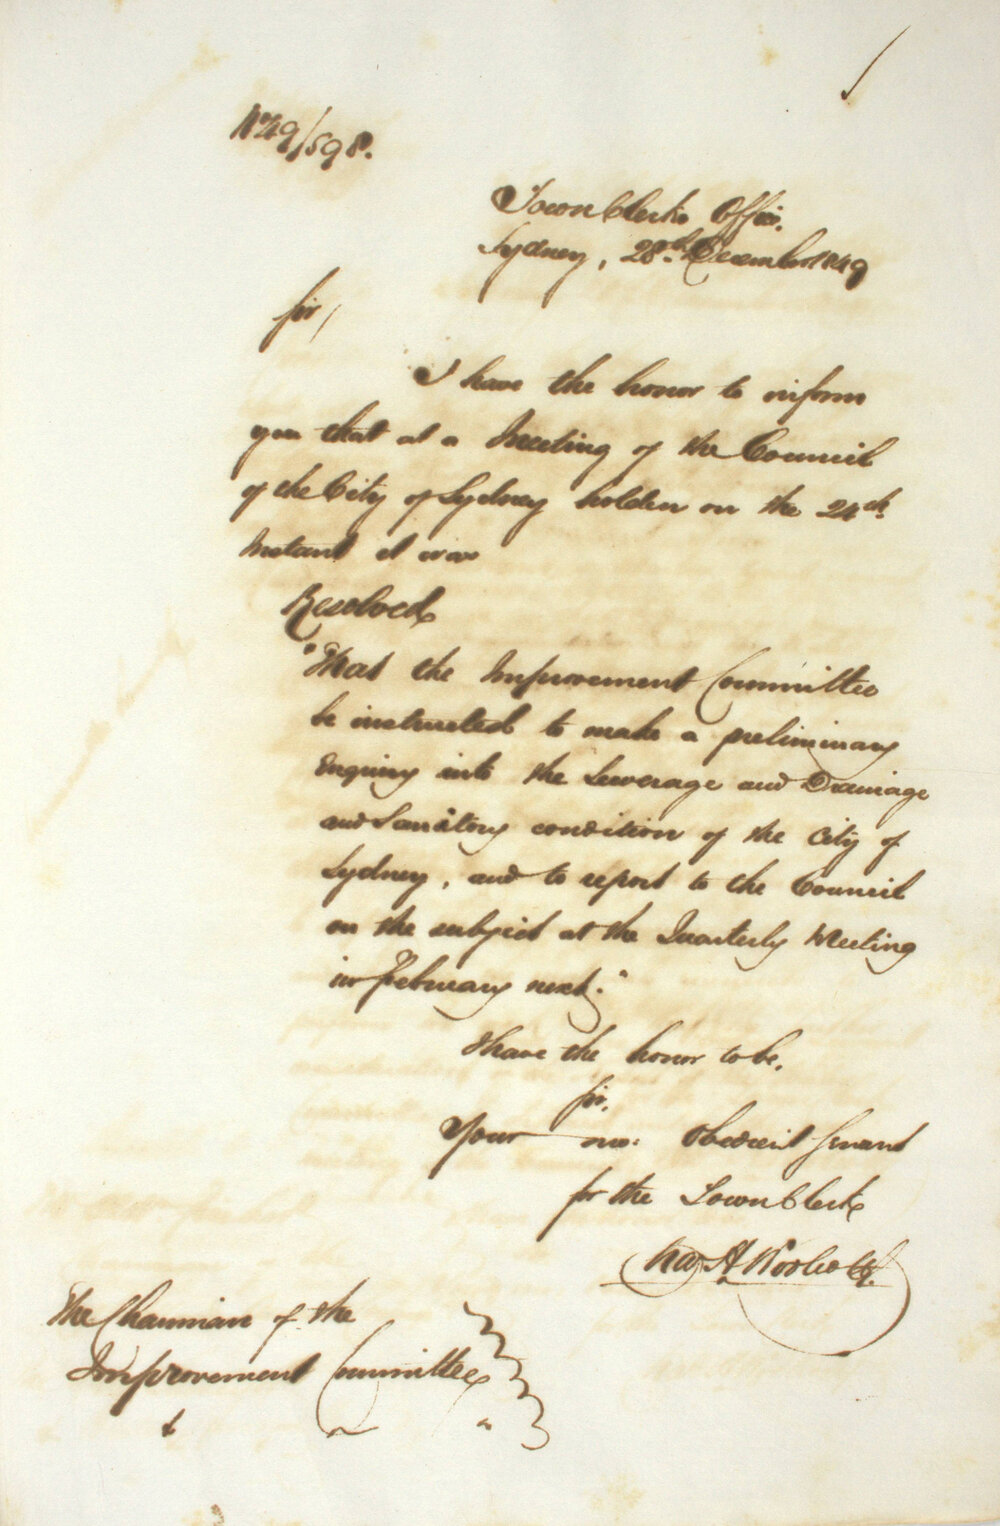 No 49/598.
Town Clerks Office.
Sydney, 28th December 1849
Sir,
I have the honor to inform
you that at a Meeting of the Council
of the City of Sydney holden on the 24th
Instant it was
Resolved
"That the Improvement Committee
be instructed to make a preliminary
Enquiry into the Sewerage and Drainage
and Sanitory condition of the City of
Sydney, and to report to the Council
on the subject at the Quarterly Meeting
in February next."
I have the honor to be,
Sir,
Your mo: Obedient Servant
for the Town Clerk
The Chairman of the
Improvement Committee